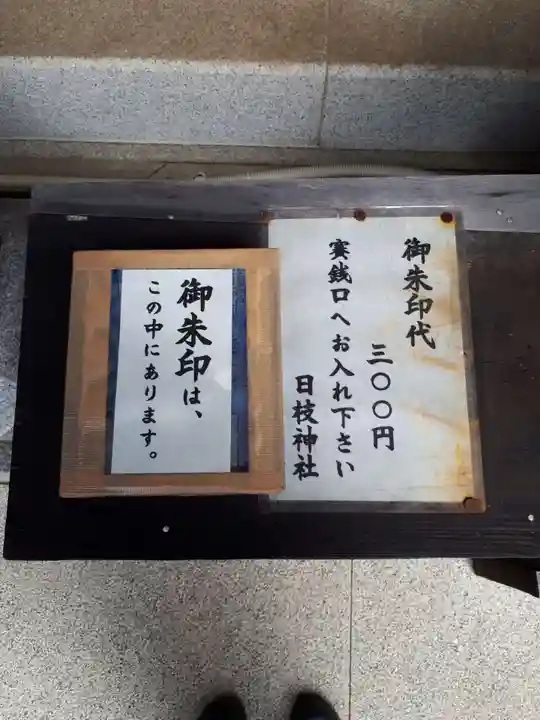 御朱印代
三〇〇円
賽銭口へお入れ下さい
日枝神社
御朱印は、
この中にあります。